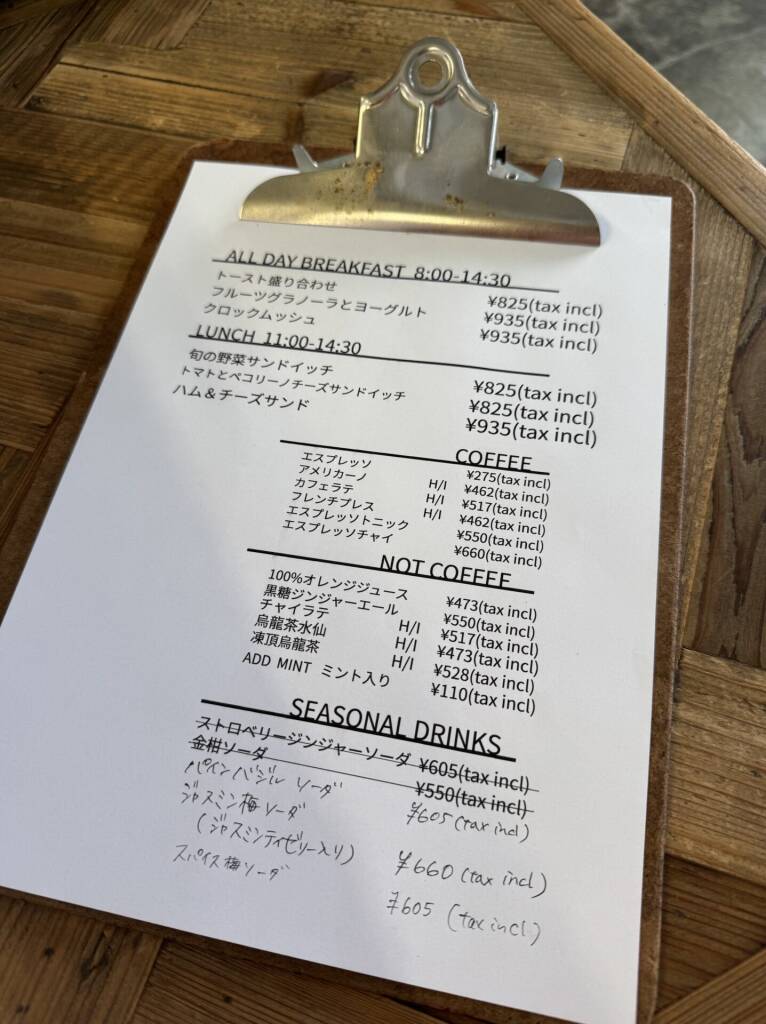 ALL DAY BREAKFAST 8:00-14:30
トースト盛り合わせ ¥825(tax incl)
フルーツグラノーラとヨーグルト ¥935(tax incl)
クロックムッシュ ¥935(tax incl)
LUNCH 11:00-14:30
旬の野菜サンドイッチ ¥825(tax incl)
トマトとペコリーノチーズサンドイッチ ¥825(tax incl)
ハム＆チーズサンド ¥935(tax incl)
COFFEE
エスプレッソ ¥275(tax incl)
アメリカーノ H/I ¥462(tax incl)
カフェラテ H/I ¥517(tax incl)
フレンチプレス H/I ¥462(tax incl)
エスプレッソトニック ¥550(tax incl)
エスプレッソチャイ ¥660(tax incl)
NOT COFFEE
100%オレンジジュース ¥473(tax incl)
黒糖ジンジャーエール ¥550(tax incl)
チャイラテ H/I ¥517(tax incl)
烏龍茶水仙 H/I ¥473(tax incl)
凍頂烏龍茶 H/I ¥528(tax incl)
ADD MINT ミント入り ¥110(tax incl)
SEASONAL DRINKS
ストロベリージンジャーソーダ ¥605(tax incl)
金柑ソーダ ¥550(tax incl)
パインバジル ソーダ ¥605(tax incl)
ジャスミン梅ソーダ
(ジャスミンティゼリー入り) ¥660(tax incl)
スパイス梅ソーダ ¥605(tax incl.)